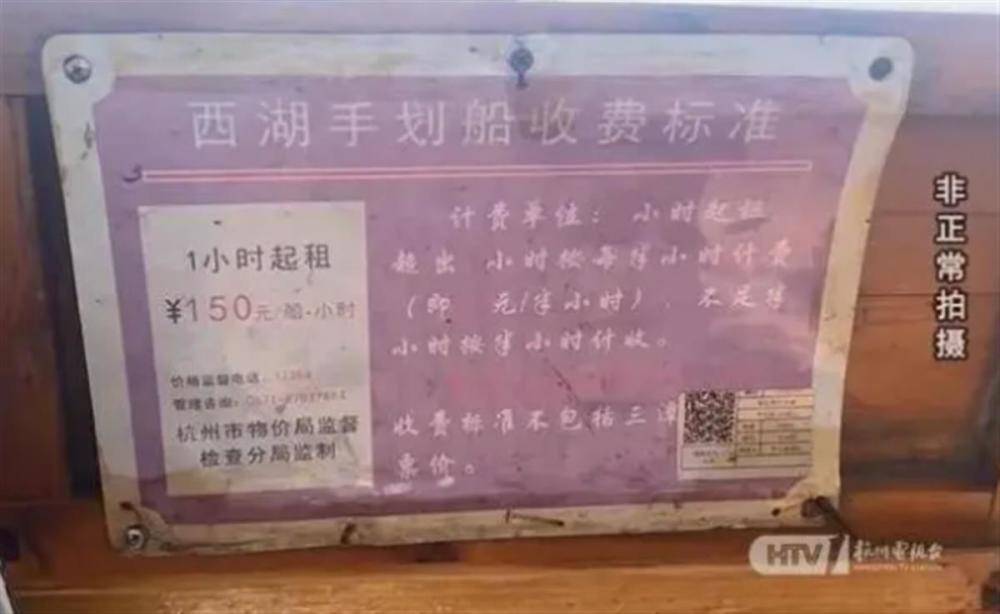 西湖手划船收费标准
1小时起租
¥150元/船·小时
价格监督电话：12358
管理咨询：
杭州市物价局监督
检查分局监制
计费单位：小时起租
超出 小时按每半小时计费
（即 元/半小时），不足半
小时按半小时计收。
收费标准不包括三潭
票价。
非正常拍摄
HTV 杭州电视台